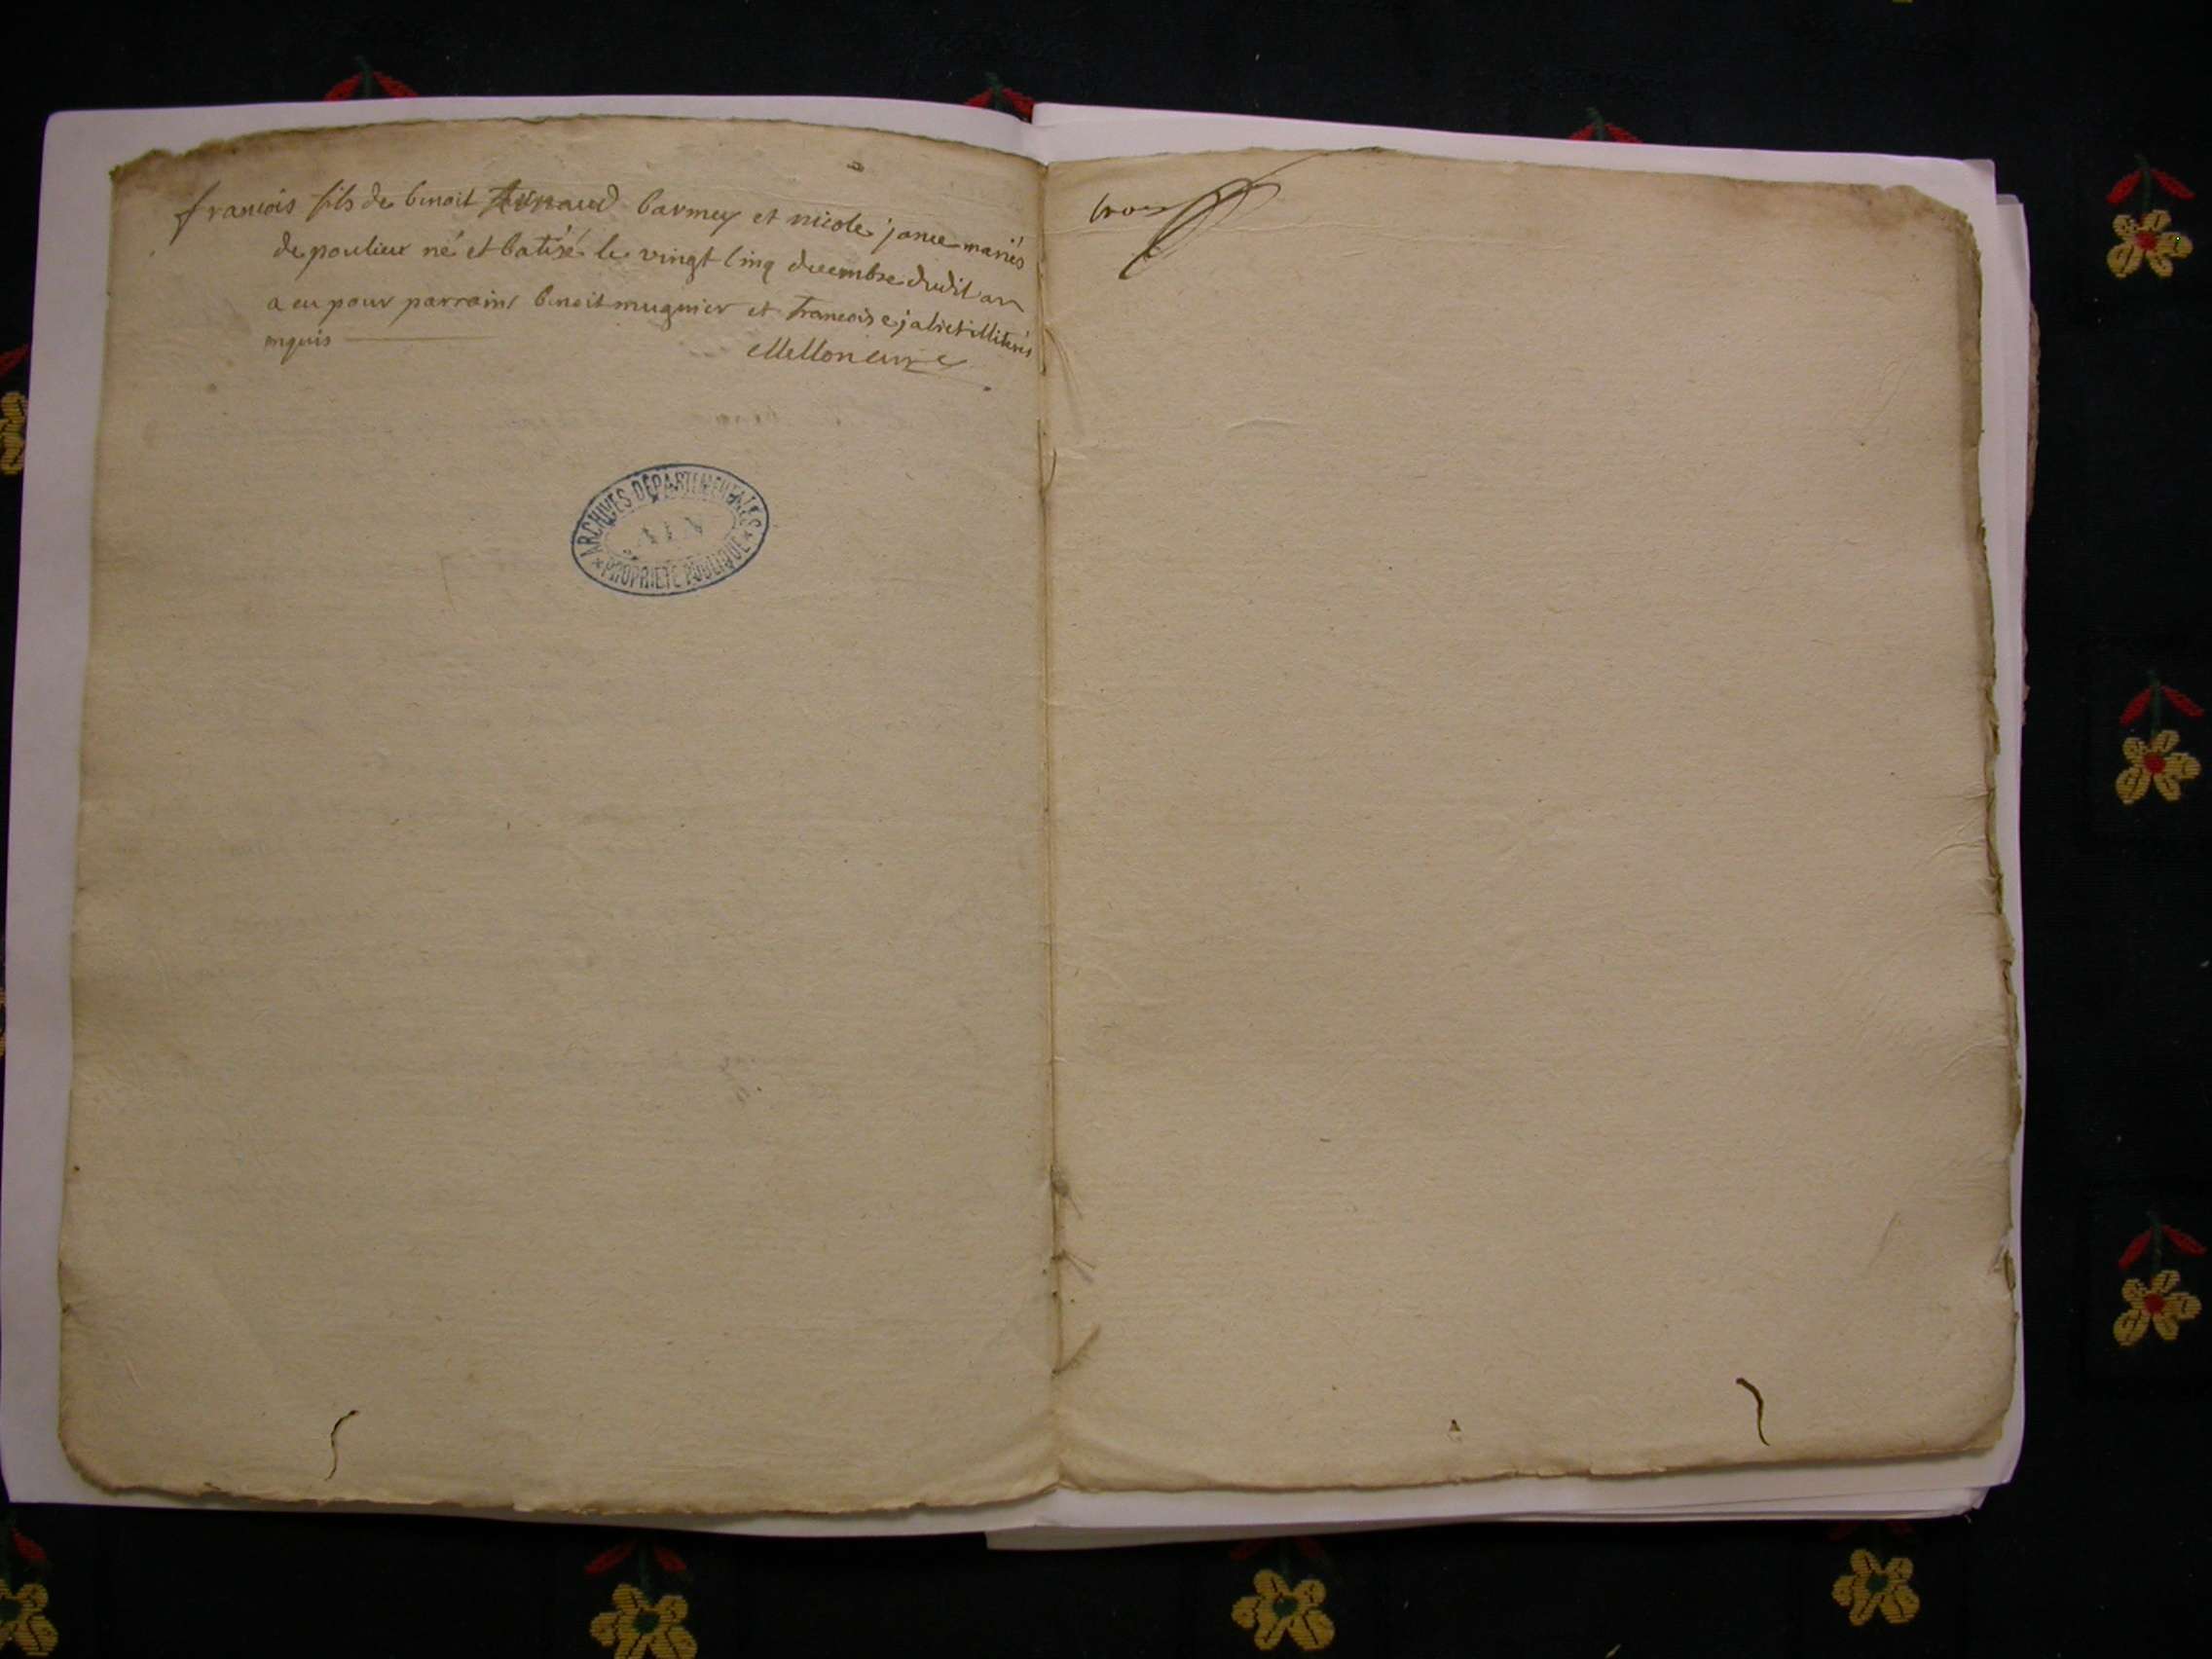 francois fils de benoit barmey et nicole janee mariés
de poulieu né et batisé le vingt cinq decembre dudit an
a eu pour parrain benoit mugnier et francoise jaliet illiterés
enquis
Mellon curé
ARCHIVES DÉPARTEMENTALES
AIN
PROPRIÉTÉ PUBLIQUE
trois